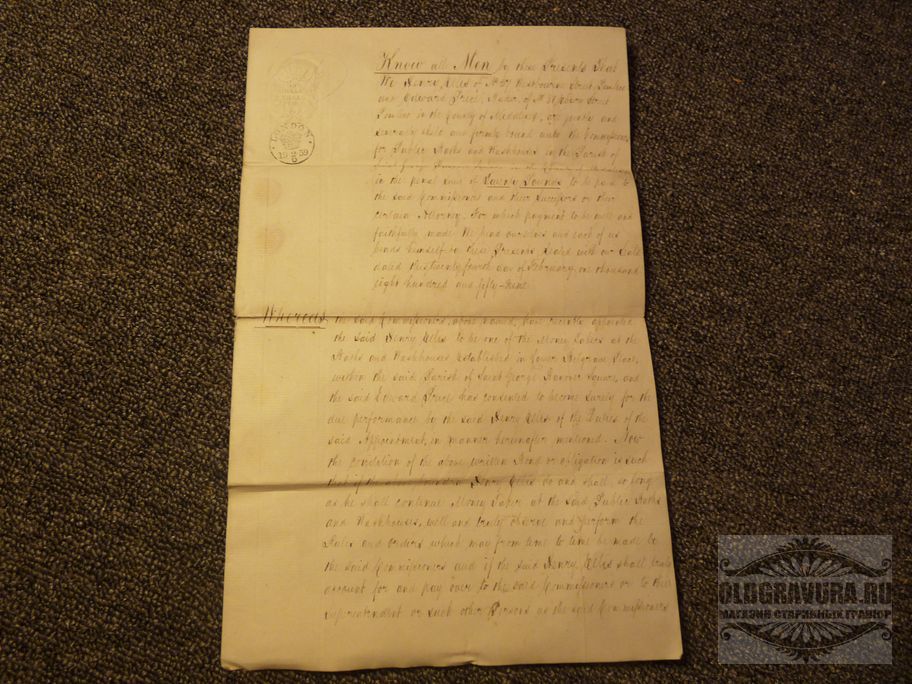 LONDON
19.2.59
Know all Men by these Presents That
We Henry Ellis of No 27 Westbourne Street Pimlico
and Edward Price, of No Street
Pimlico in the County of Middlesex, are jointly and
severally held and firmly bound unto the Commissioners
for Public Baths and Washhouses in the Parish of
Saint George Hanover Square in the
in the penal sum of Twenty Pounds to be paid to
the said Commissioners and their Successors or their
certain Attorney. For which payment to be well and
faithfully made We bind ourselves and each of us
binds himself by these Presents Sealed with our Seals
dated this twenty fourth day of February one thousand
eight hundred and fifty-nine
Whereas the said Commissioners, above named, have recently appointed
the said Henry Ellis to be one of the Money Takers at the
Baths and Washhouses established in Lower Belgrave Place,
within the said Parish of Saint George Hanover Square, and
the said Edward Price has consented to become surety for the
due performance by the said Henry Ellis of the Duties of the
said Appointment, in manner hereinafter mentioned. Now
the condition of the above written Bond or obligation is such
that if the above bounden Henry Ellis do and shall, so long
as he shall continue Money Taker at the said Public Baths
and Washhouses, well and truly observe and perform the
Rules and Orders which may from time to time be made by
the said Commissioners and if the said Henry Ellis shall
account for and pay over to the said Commissioners or to their
superintendent or such other Persons as the said Commissioners
OLDGRAVURA.RU
МАГАЗИН СТАРИННЫХ ГРАВЮР